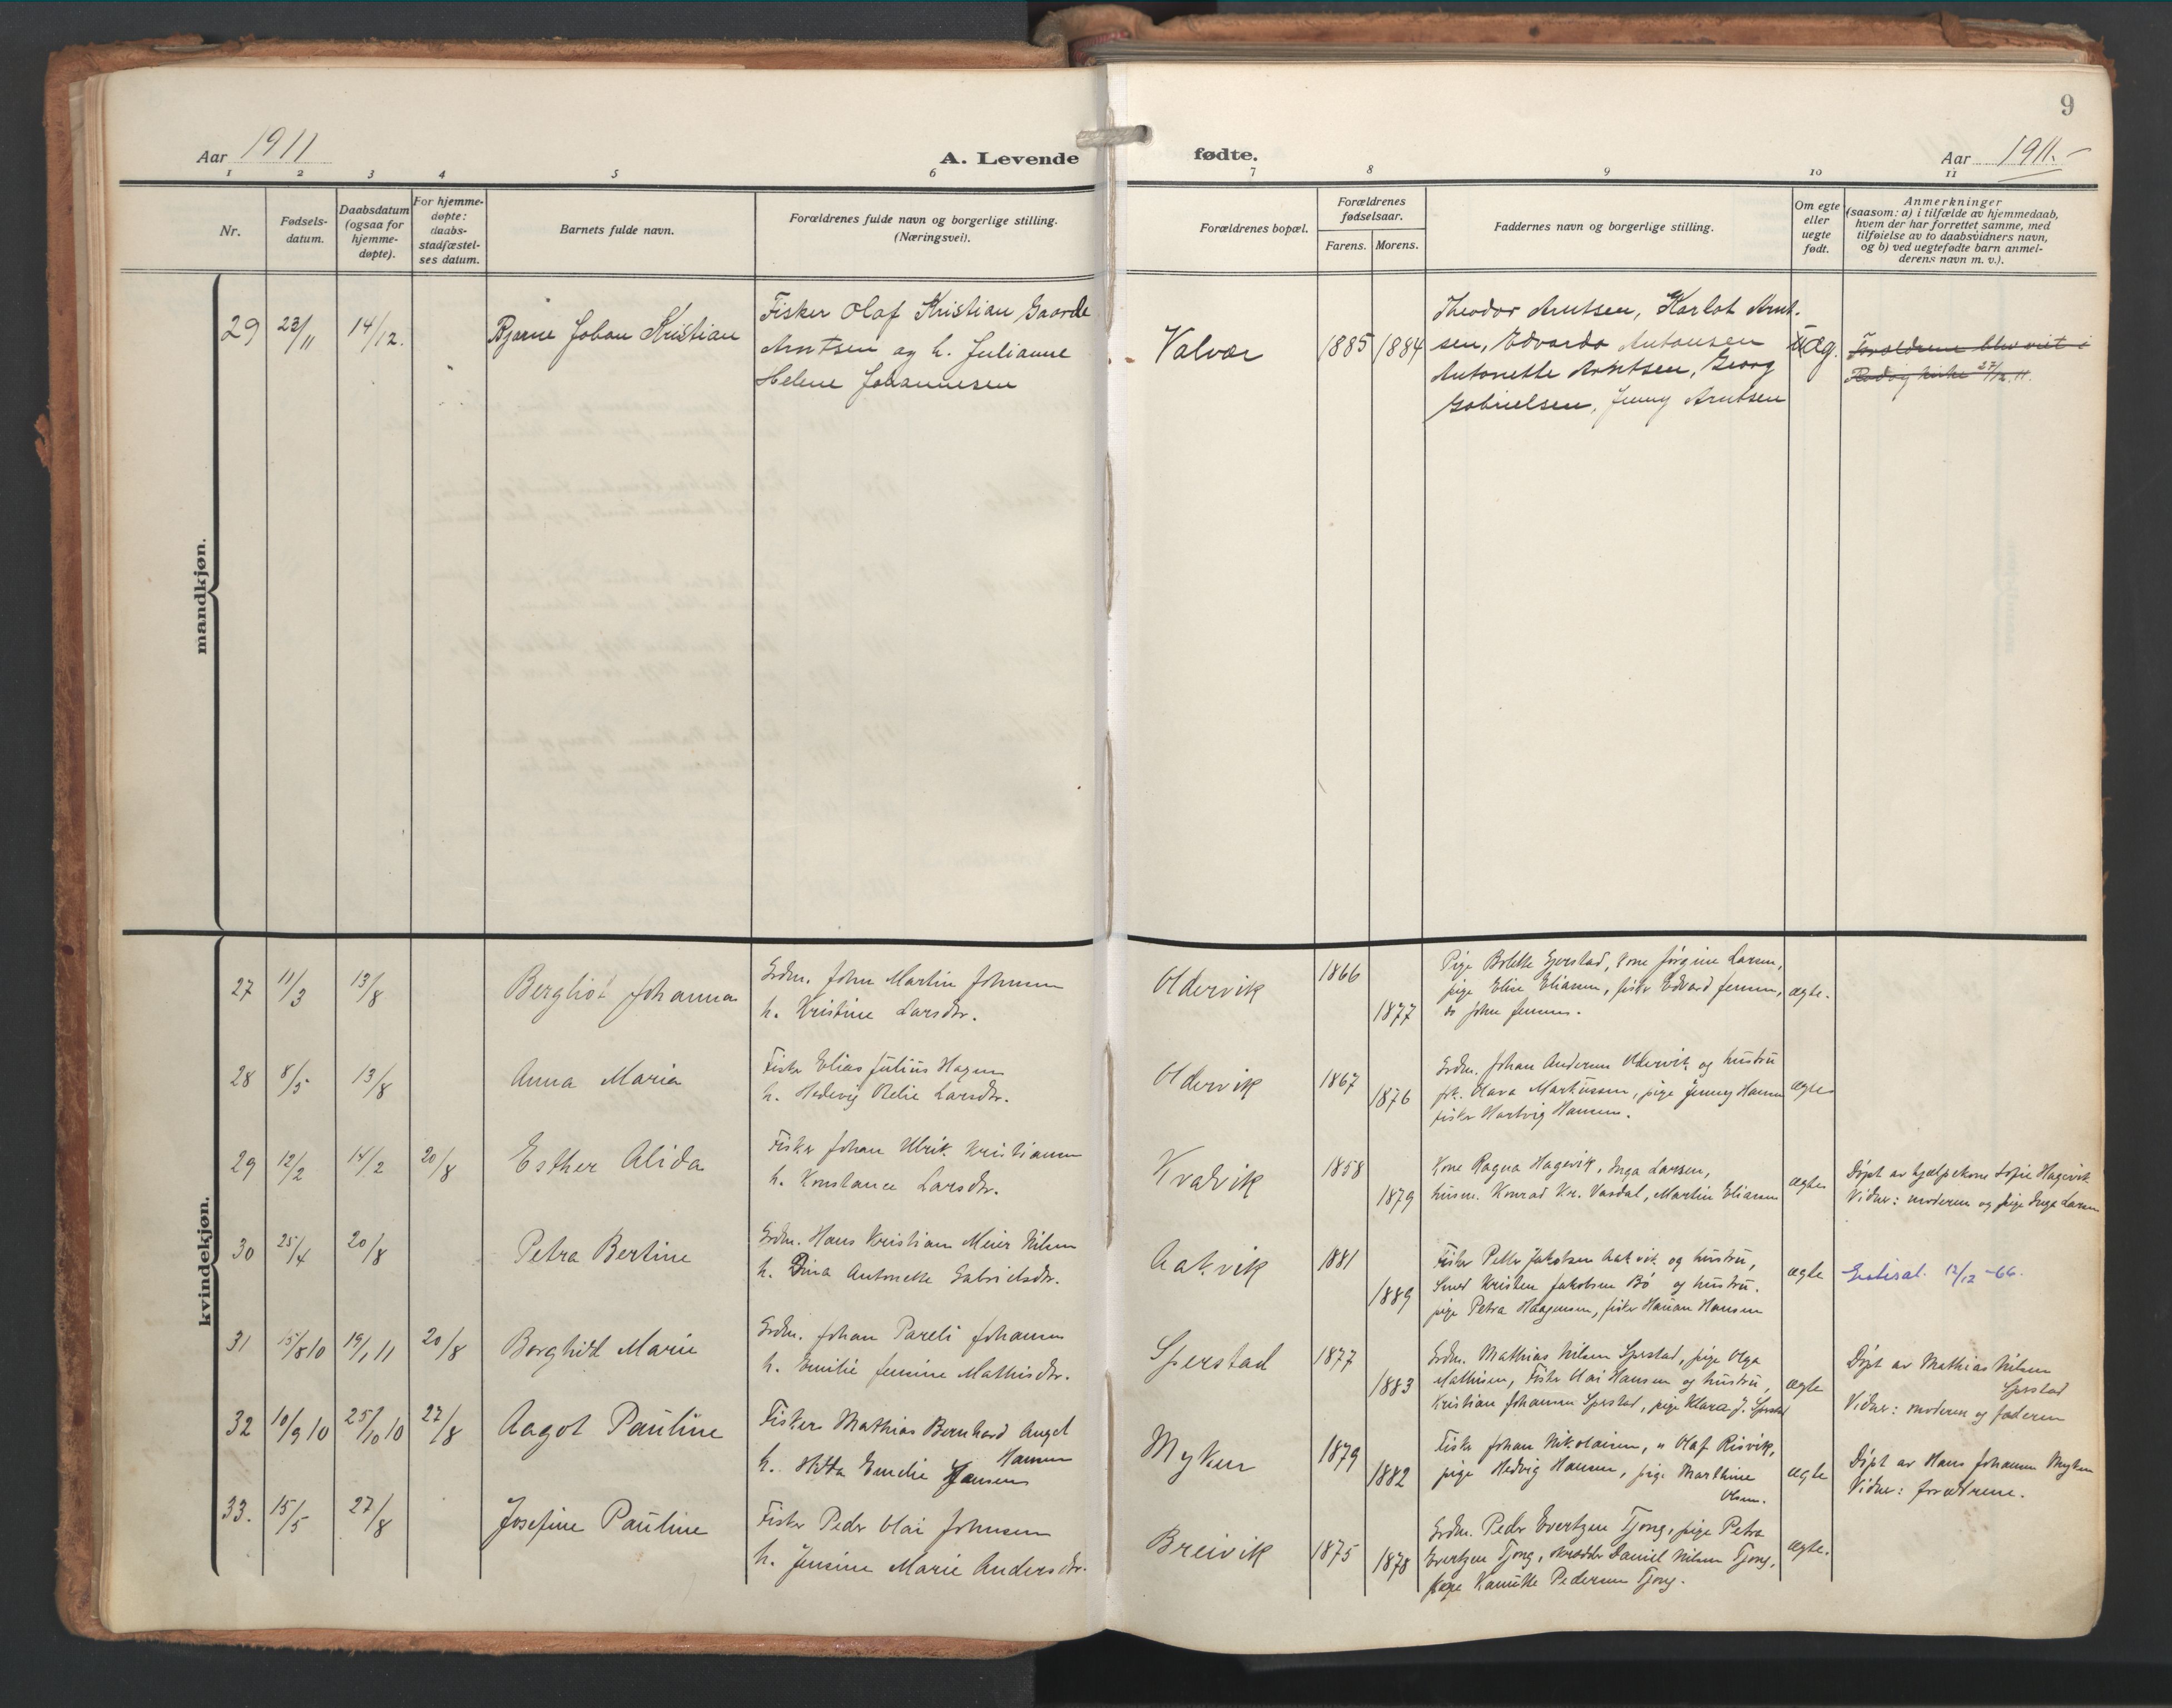 9
Aar 1911
A. Levende
fødte.
Aar 1911.
1 2 3 4 5 6 7 8 9 10 11
Nr.
Fødsels-
datum.
Daabsdatum
(ogsaa for
hjemme-
døpte).
For hjemme-
døpte:
daabs-
stadfæstel-
ses datum.
Barnets fulde navn.
Forældrenes fulde navn og borgerlige stilling.
(Næringsvei).
Forældrenes bopæl.
Forældrenes
fødselsaar.
Farens. Morens.
Faddernes navn og borgerlige stilling.
Om egte
eller
uegte
født.
Anmerkninger
(saasom: a) i tilfælde av hjemmedaab,
hvem der har forrettet samme, med
tilføielse av to daabsvidners navn,
og b) ved uegtefødte barn anmel-
derens navn m. v.).
mandkjøn.
29 23/11 14/12.
Bjarne Johan Kristian
Fisker Olaf Kristian Gaarde
Arntsen og h. Julianne
Helene Johannesen
Valvær
1885 1884
Theodor Arntsen, Karlot Arnt-
sen, Edvarda Antonsen
Antonette Arntsen, Georg
Gabrielsen, Jenny Arntsen
Forældrene blev viet i
kirke 27/12 11.
kvindekjøn.
27 11/3 13/8
Bergliot Johanna
Grdm. John Martin Johnsen
h. Kristine Larsdtr.
Oldervik
1866
1877
Pige Bolette Sperstad, kone Jørgine Larsen,
pige Elise Eliasen, fisker Edvard Jensen,
do John Jensen.
ægte.
28 8/5 13/8
Anna Maria
Fisker Elias Julius Hagen
h. Hedevig Larsdtr.
Oldervik
1867
1876
Grdm. Johan Andersen Oldervik og hustru
frk. Olava Markussen, pige Jenny Hansen
fisker Hartvig Hansen.
ægte
29 12/2 14/2 20/8
Esther Alida
Fisker Johan Ulrik Kristiansen
h. Konstance Larsdtr.
Kvalvik
1858
1879
Kone Ragna Hagevik, Inga Larsen,
husm. Konrad Kr. Vasdal, Martin Eliasen
ægte
Døpt av hjælpekone Sofie Hagevik
Vidner: moderen og pige Inga Larsen
30 25/4 20/8
Petra Bertine
Grdm. Hans Kristian Meier Nilsen
h. Dina Antonette Gabrielsdtr.
Aakvik
1881
1889
Fisker Petter Jakobsen Aakvik og hustru,
Smed Kristen Jakobsen Bø og hustru.
pige Petra Haagensen, fisker Hansen
ægte
12/12 -66.
31 15/8 10 19/1 11 20/8
Borghild Marie
Grdm. Johan Pareli Johansen
h. Emilie Jensine Mathisdtr.
Sperstad
1877
1883
Grdm. Mathias Nilsen Sperstad, pige Olga
Mathisen, Fisker Olai Hansen og hustru,
Kristian Johansen Sperstad, pige Klara J. Sperstad
ægte
Døpt av Mathias Nilsen
Sperstad
Vidner: moderen og faderen
32 10/9 10 25/10 10 27/8
Aagot Pauline
Fisker Mathias Bernhard Angel
Hansen
h. Hilda Emelie Hansen
Myken
1879
1882
Fisker Johan Nikolaisen, " Olaf Risvik,
pige Hedvig Hansen, pige Marthine
Olsen.
ægte
Døpt av Hans Johansen Myken
Vidner: forældrene.
33. 15/5 27/8
Josefine Pauline
Fisker Peder Olai Johnsen
h. Jensine Marie Andersdtr.
Breivik
1875 1878
Grdm. Peder Evertzen Tjong, pige Petra
Evertzen Tjong, skrædder Daniel Nilsen Tjong,
pige Kamilla Pedersen Tjong.
ægte.